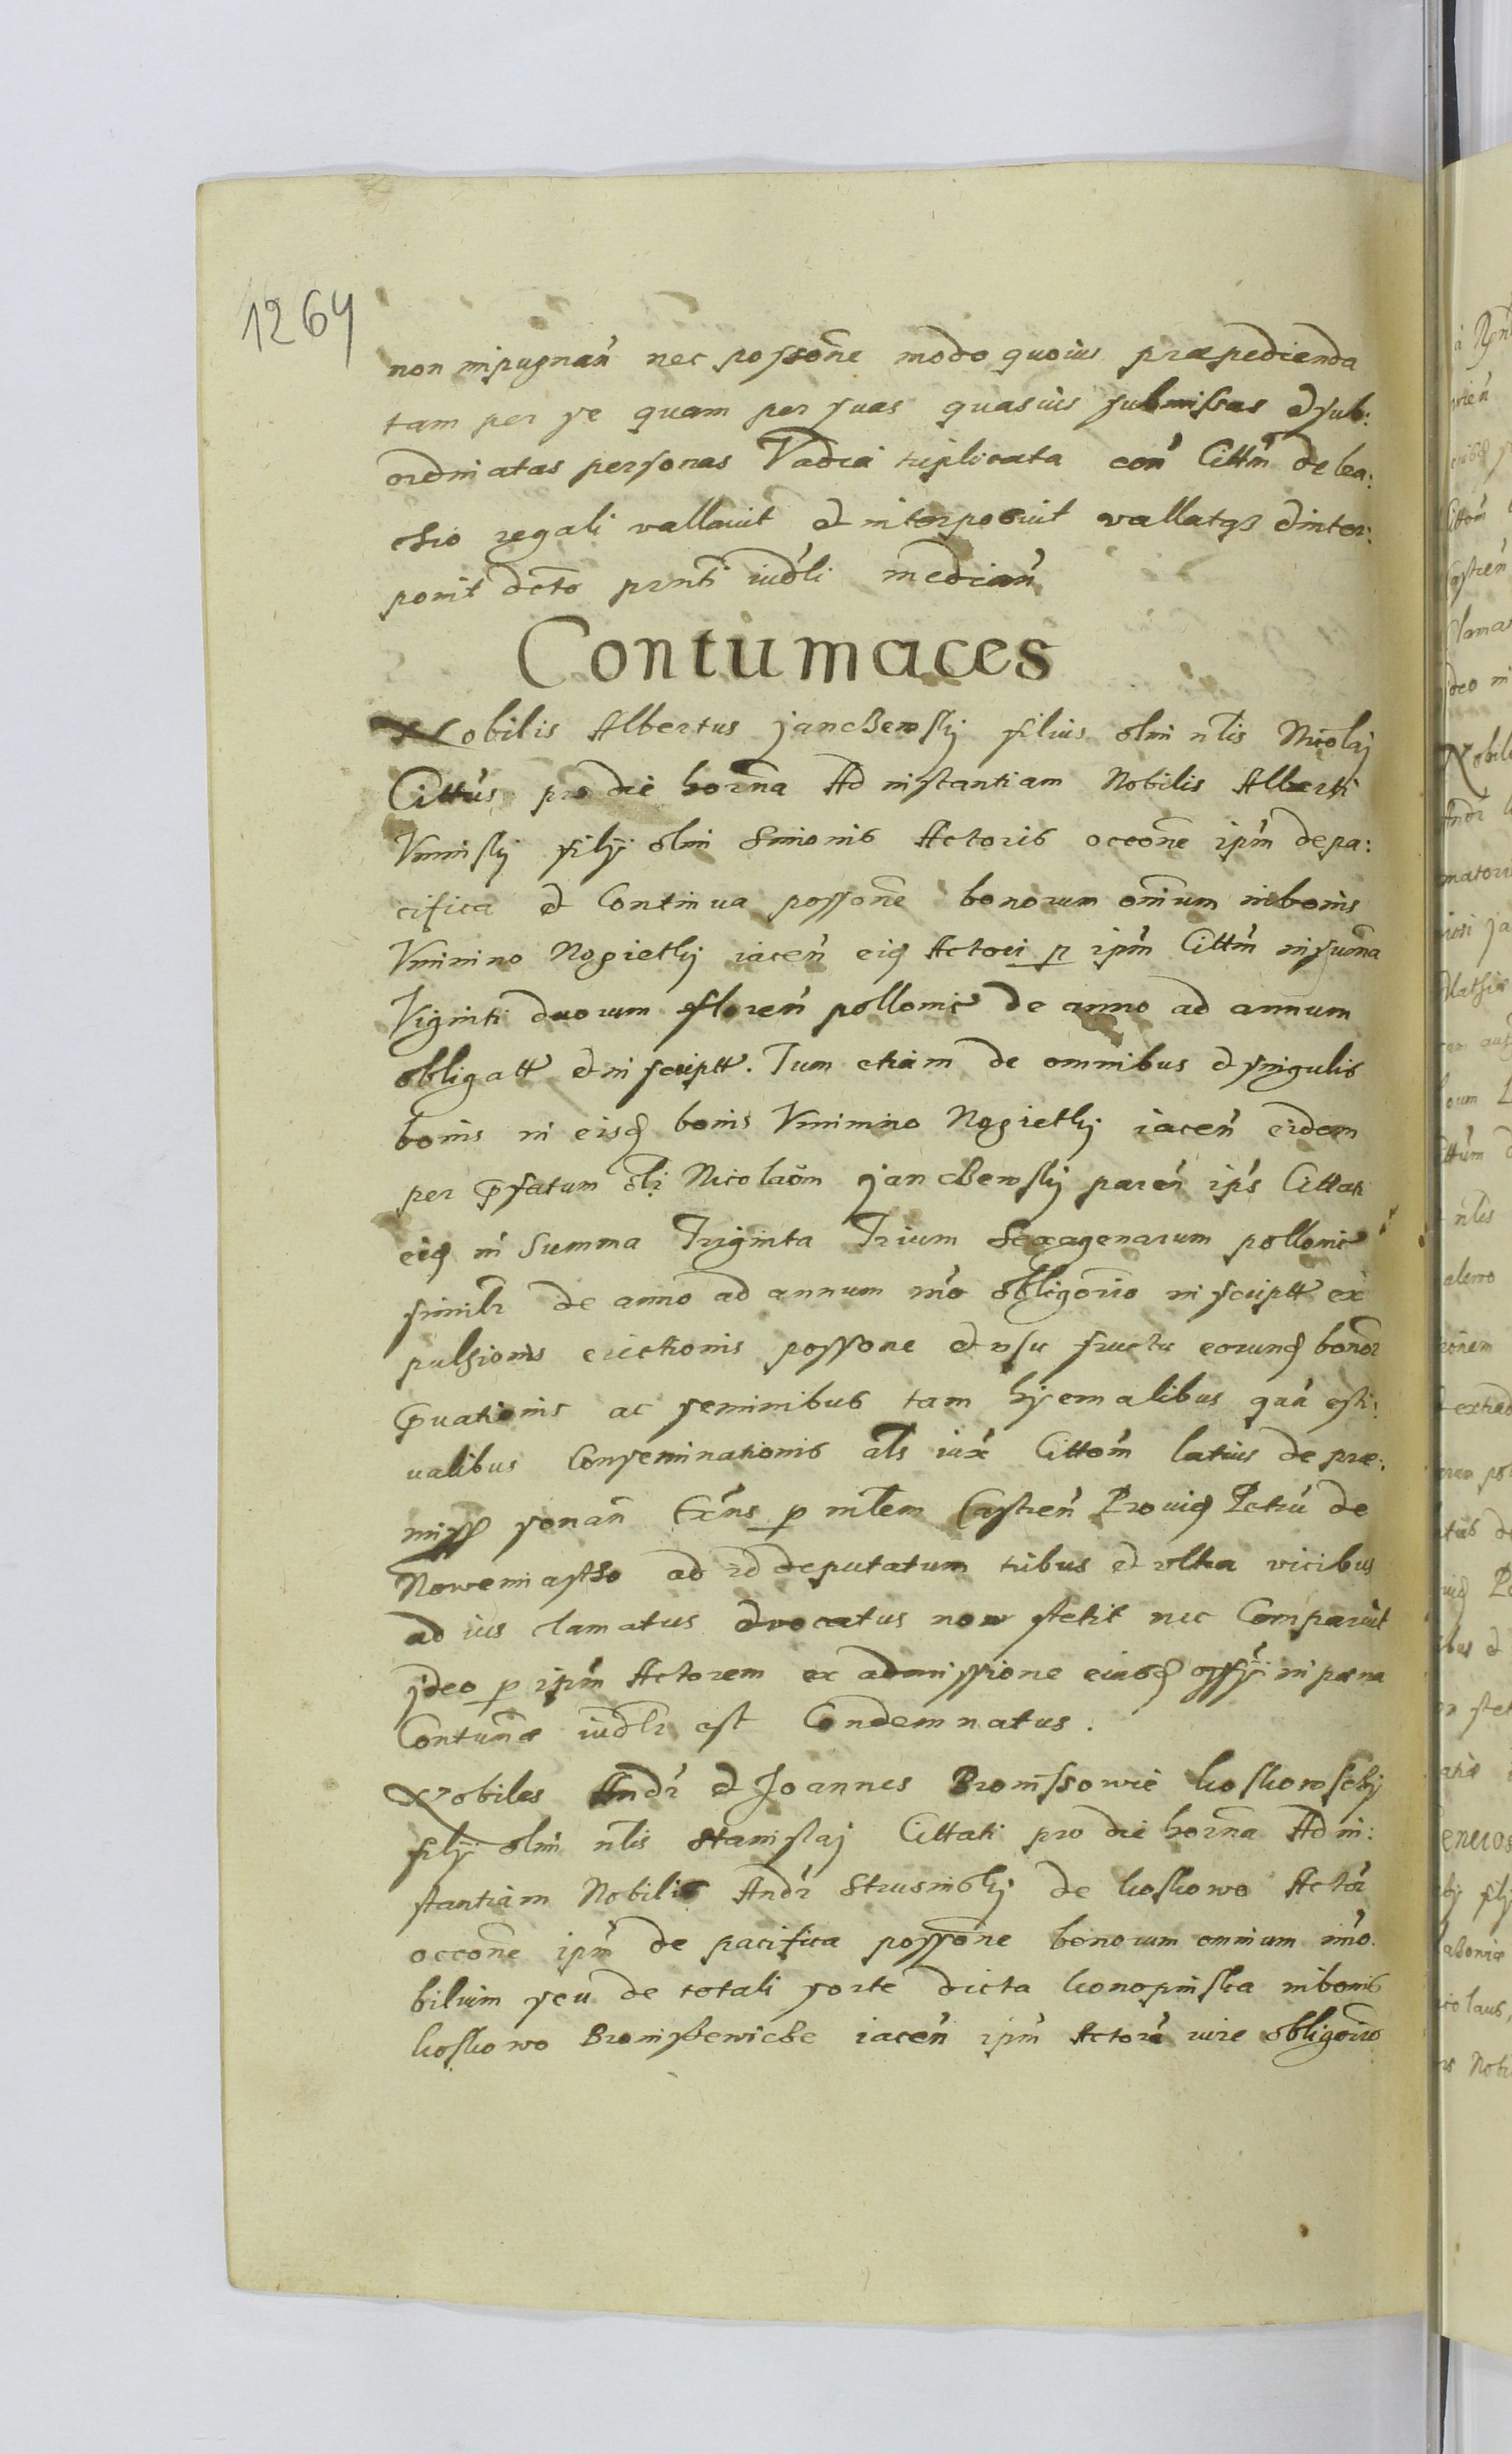 1264
non inpugnań nec possone modo quouis præpedienda
tam per se quam per suas quasuis submissas et sub:
ordinatas personas Vadia triplicata coń Cittm̃ de lea:
regali vallauit et interposuit vallatqʒ et inter:
ponit dcto prnti iudli mediań
Contumaces
Nobilis Albertus Janczewsky filius olim nlis Nicolaj
Cittus pro die horna Ad instantiam Nobilis Alberti
Vninsky filÿ olim Simonis Actoris occone ipm de pa:
cifica et Continua possone bonorum omium in bonis
Vninino Nagietky iaceń eiq Actori p ipm Cittm in suma
Viginti duorum floreń pollonic de anno ad annum
obligatt et inscriptt. Tum etiam de omnibus et singulis
bonis in eisq bonis Vninino Nagietky iaceń eidem
per prfatum oli Nicolaum Janczewsky pareń ips Cittati
eiq in Summa Triginta Trium Sexagenarum pollonic
similr de anno ad annum mo obligorio inscriptt ex
pulsionis eiectionis possone et usu fructu eorunq bonor
priuationis ac seminibus tam hyemalibus qua esti:
ualibus Conseminationis als iux Cittom latius de præ:
miss sonań Exns p mlem Castreń Prouiq Petru de
Nowemiasto ad id deputatum tribus et vltra vicibus
ad ius clamatus et vocatus non stetit nec Comparuit
Ideo p ipm Actorem ex admissione eiusq offÿ in pæna
Contumæ iudlr est Condemnatus.
Nobiles Andr et Joannes Bronissowie koskowsczy
filÿ olim nlis Stanislaj Cittati pro die horna Ad in:
stantiam Nobilis Andr Strusinsky de koskowo Actor
occone ipm de pacifica possone bonorum omnium imo:
bilium seu de totali sorte dicta konopinska in bonis
koskowo Bronissewicze iaceń ipm Actore iure obligorio